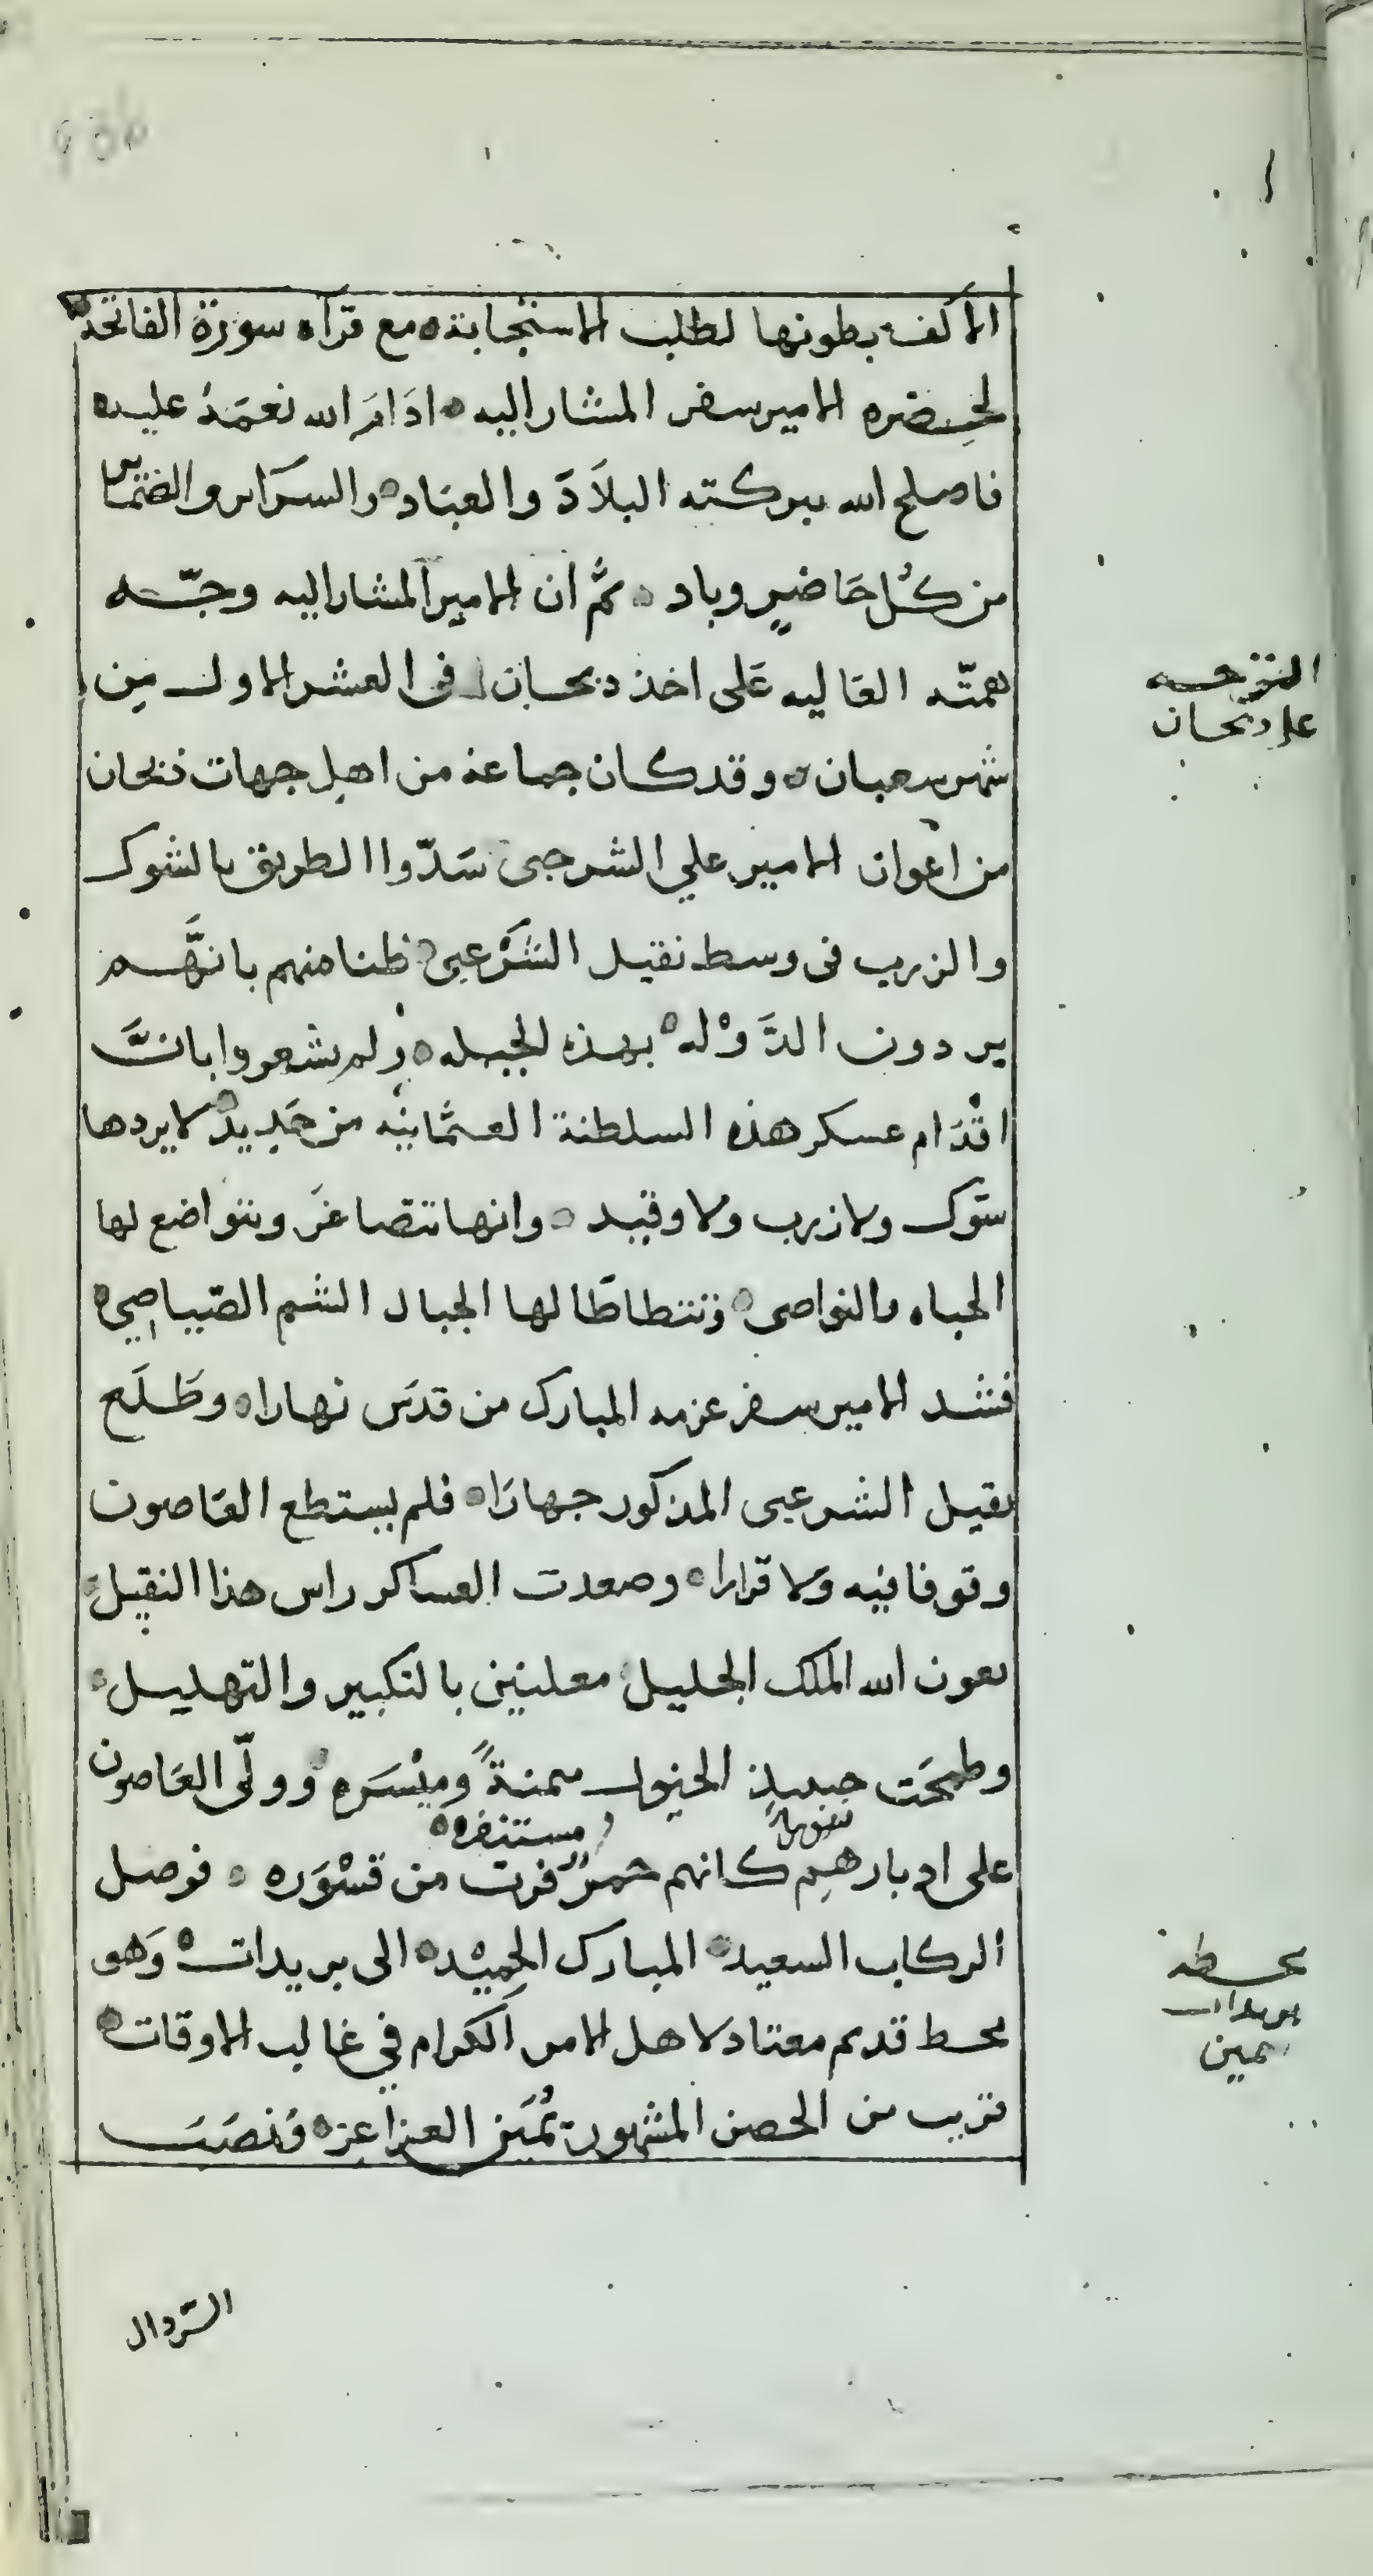 الاكف بطونها لطلب الاستجابة مع قرآه سورة الفاتحه
لحضره الامير سفر المشار اليه ادَامَ الله نعمَهُ عليه
فاصلح الله ببركته البلاَدَ والعبَاد والسرَاير والضمَاير
من كُل حَاضرٍ وباد ثمَّ ان الامير المشار اليه وجّه
همتّه العَاليه عَلى اخذ دبحان في العشر الاول مِن
شهر سعبان وقد كان جماعة من اهل جهات ذبحان
من اعوان الامير علي الشرجبى سَدّوا الطريق بالشوك
والزرب فى وسط نقيل الشَرْعبى ظنا منهم بانهَّم
يردون الدَّوْله بهذه الحيله ولم يشعروا بانَّ
اقْدَام عسكر هذه السلطنة العثمَانيْه من حَدِيدٌ لا يردها
شَوك ولا زرب ولا وقيد وانها تتصَاغَر وتتواضع لها
الجباه والنواصى وتتطاطَا لها الجبال الشم الصّياصِي
فشد الامير سفر عزمه المبارك من قدَس نهارا وطَلَع
نقيل الشرعبى المذكور جهارَا فلم يستطع العَاصون
وقوفا فيه وَلا قرارا وصعدت العساكر راس هذا النقيل
بعون الله الملك الجليل معلنين بالتكبير والتهليل
وطمحَت حينيذٍ الخيول يمنةً وميْسَره وولّى العَاصون
على ادبارهِم نفورًا كانهم حُمرٌ مستنفره فرت من قسْوَره فوصل
الركاب السعيد المبارك الحمِيْد الى بريدات وَهو
محط قديم معتاد لاهل الامر الكرام في غالب الاوقات
قريب من الحصن المشهور يُمَين العزاعز فنصَبَ
السّردار
التوجه
على دبحان
محطه
بريدات
يمين